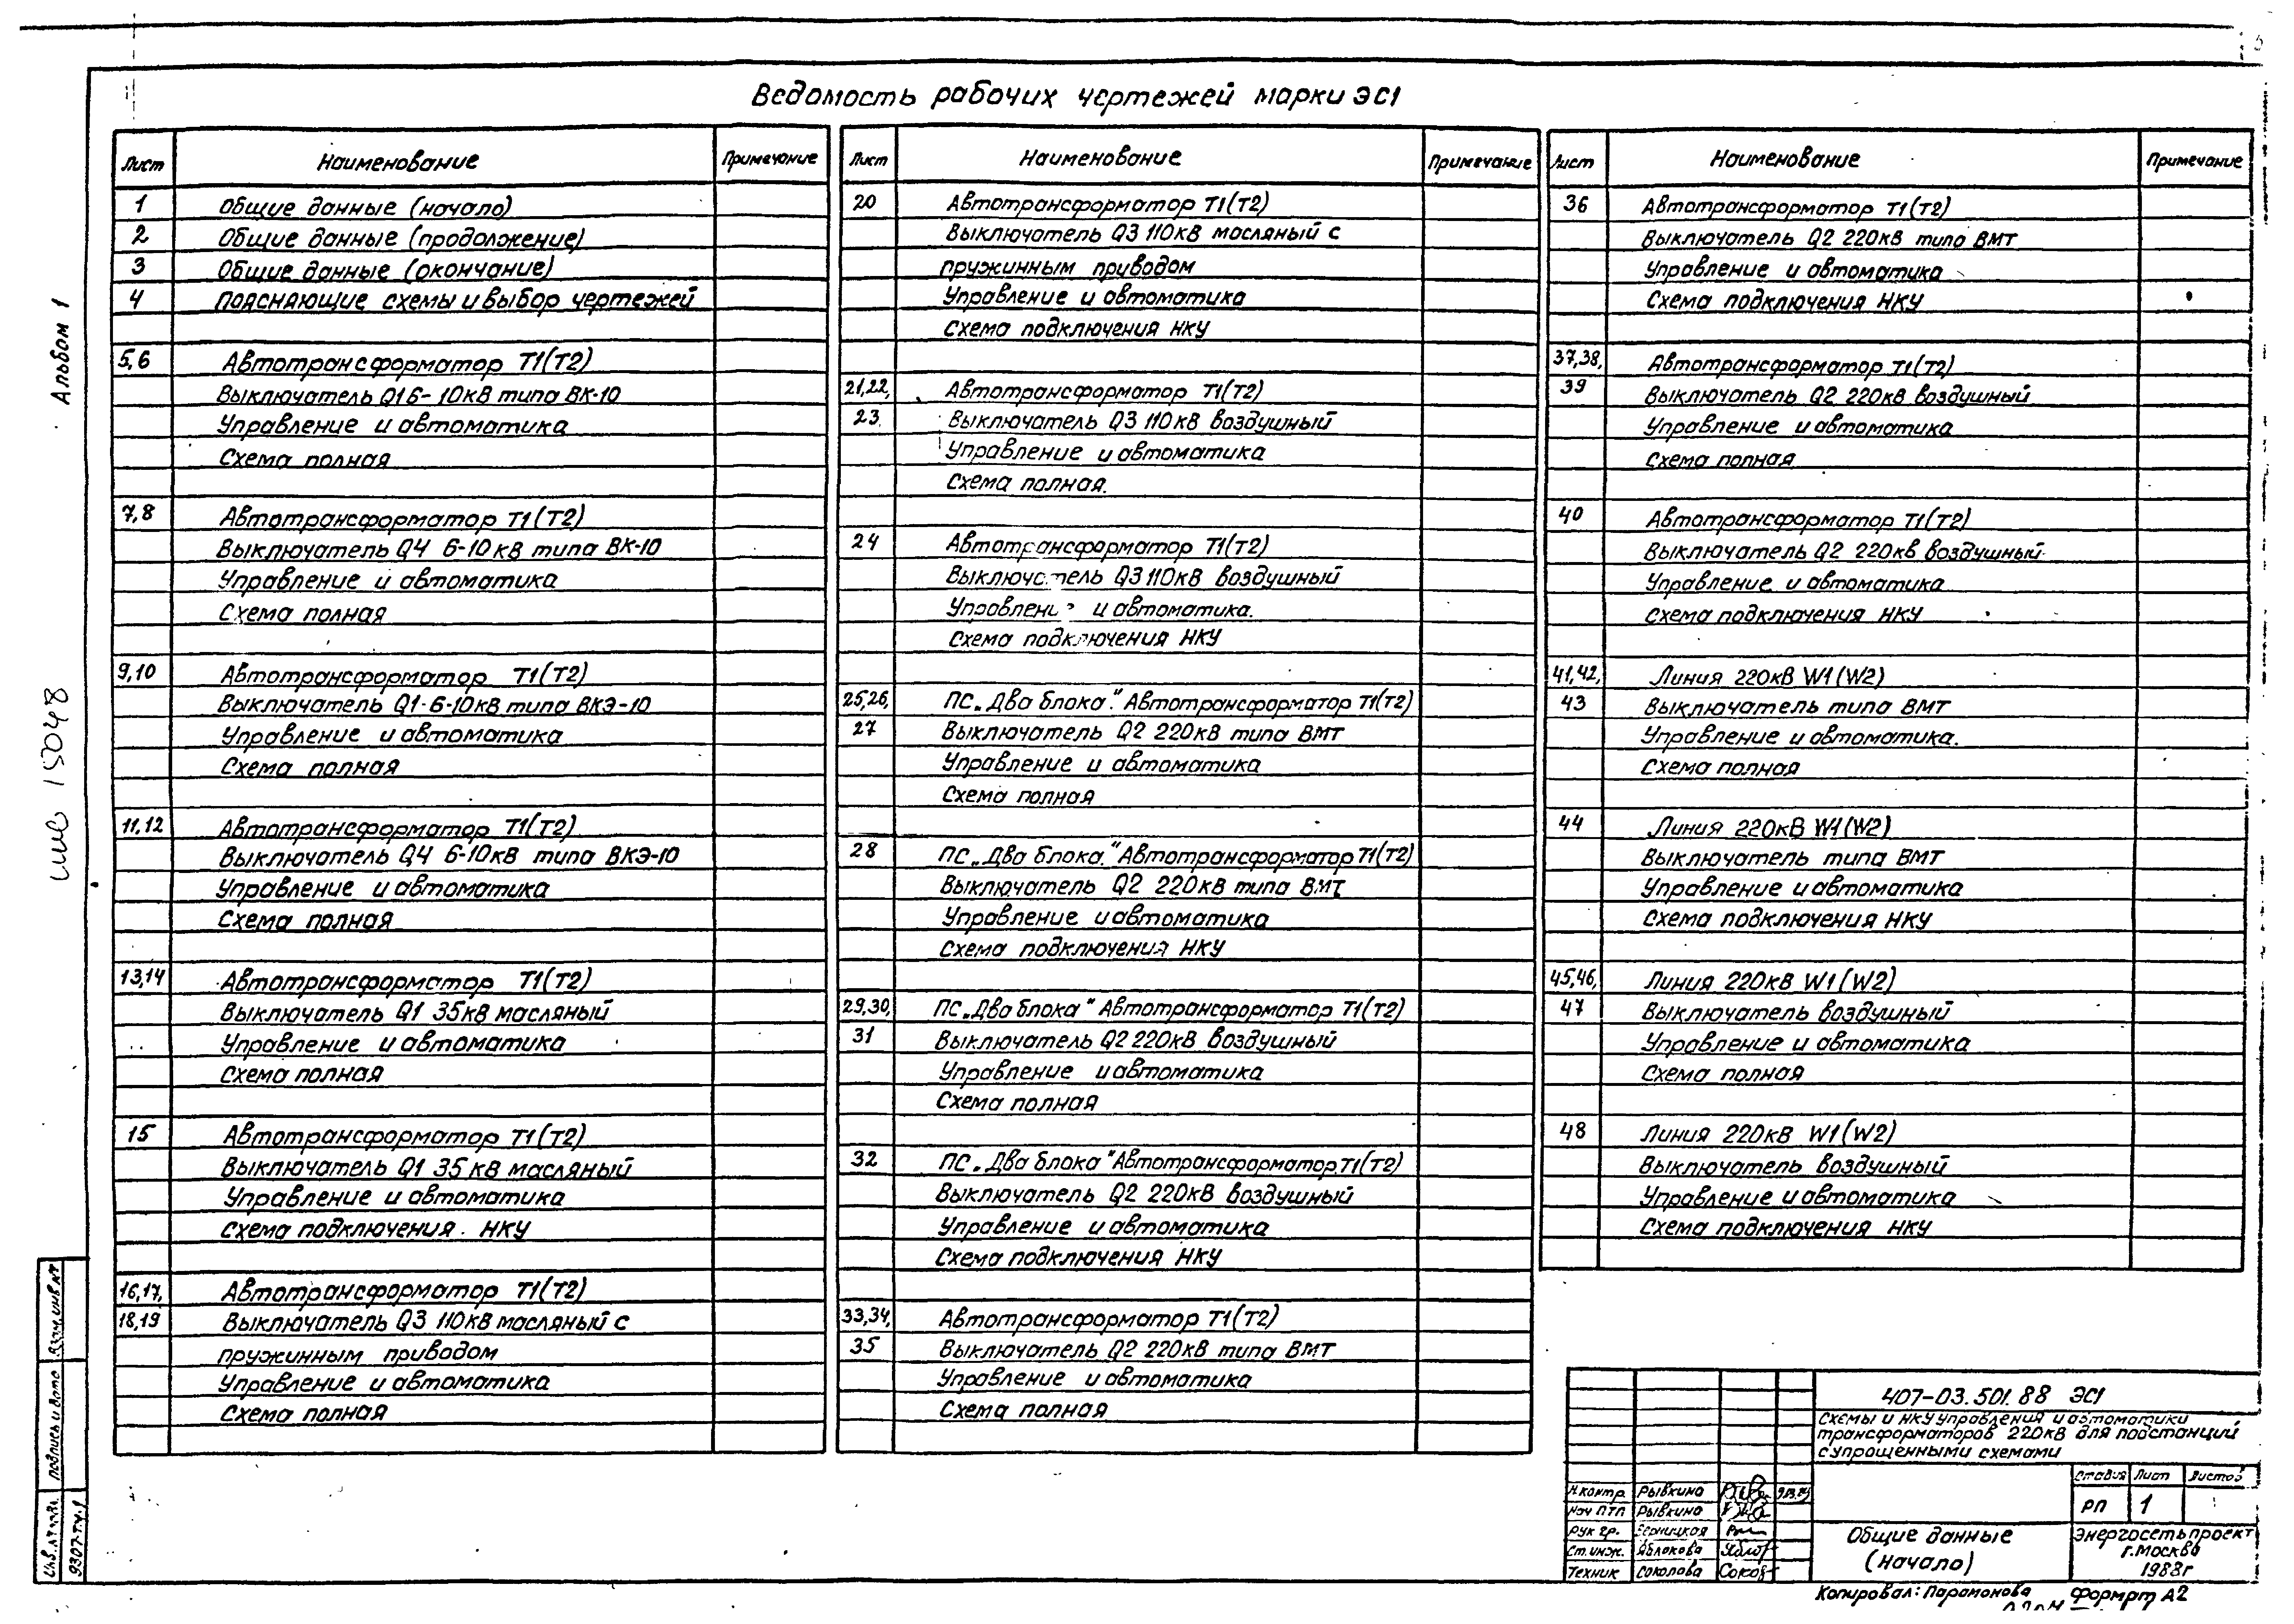 Ведомость рабочих чертежей марки ЭС1
Лист Наименование Примечание
1 Общие данные (начало)
2 Общие данные (продолжение)
3 Общие данные (окончание)
4 Поясняющие схемы и выбор чертежей
5,6 Автотрансформатор Т1(Т2)
Выключатель Q1 6-10кВ типа ВК-10
Управление и автоматика
Схема полная
7,8 Автотрансформатор Т1(Т2)
Выключатель Q4 6-10кВ типа ВК-10
Управление и автоматика
Схема полная
9,10 Автотрансформатор Т1(Т2)
Выключатель Q1-6-10кВ типа ВКЭ-10
Управление и автоматика
Схема полная
11,12 Автотрансформатор Т1(Т2)
Выключатель Q4 6-10кВ типа ВКЭ-10
Управление и автоматика
Схема полная
13,14 Автотрансформатор Т1(Т2)
Выключатель Q1 35кВ масляный
Управление и автоматика
Схема полная
15 Автотрансформатор Т1(Т2)
Выключатель Q1 35кВ масляный
Управление и автоматика
Схема подключения НКУ
16,17, Автотрансформатор Т1(Т2)
18,19 Выключатель Q3 110кВ масляный с
пружинным приводом
Управление и автоматика
Схема полная
Лист Наименование Примечание
20 Автотрансформатор Т1(Т2)
Выключатель Q3 110кВ масляный с
пружинным приводом
Управление и автоматика
Схема подключения НКУ
21,22, Автотрансформатор Т1(Т2)
23 Выключатель Q3 110кВ воздушный
Управление и автоматика
Схема полная.
24 Автотрансформатор Т1(Т2)
Выключатель Q3 110кВ воздушный
Управление и автоматика.
Схема подключения НКУ
25,26, ПС „Два блока". Автотрансформатор Т1(Т2)
27 Выключатель Q2 220кВ типа ВМТ
Управление и автоматика
Схема полная
28 ПС „Два блока." Автотрансформатор Т1(Т2)
Выключатель Q2 220кВ типа ВМТ
Управление и автоматика
Схема подключения НКУ
29,30, ПС „Два блока" Автотрансформатор Т1(Т2)
31 Выключатель Q2 220кВ воздушный
Управление и автоматика
Схема полная
32 ПС „Два блока" Автотрансформатор Т1(Т2)
Выключатель Q2 220кВ воздушный
Управление и автоматика
Схема подключения НКУ
33,34, Автотрансформатор Т1(Т2)
35 Выключатель Q2 220кВ типа ВМТ
Управление и автоматика
Схема полная
Лист Наименование Примечание
36 Автотрансформатор Т1(Т2)
Выключатель Q2 220кВ типа ВМТ
Управление и автоматика
Схема подключения НКУ
37,38, Автотрансформатор Т1(Т2)
39 Выключатель Q2 220кВ воздушный
Управление и автоматика
Схема полная
40 Автотрансформатор Т1(Т2)
Выключатель Q2 220кВ воздушный
Управление и автоматика
Схема подключения НКУ
41,42, Линия 220кВ W1(W2)
43 Выключатель типа ВМТ
Управление и автоматика.
Схема полная
44 Линия 220кВ W1(W2)
Выключатель типа ВМТ
Управление и автоматика
Схема подключения НКУ
45,46, Линия 220кВ W1(W2)
47 Выключатель воздушный
Управление и автоматика
Схема полная
48 Линия 220кВ W1(W2)
Выключатель воздушный
Управление и автоматика
Схема подключения НКУ
Альбом 1
инв 15048
Взам.инв№
Подпись и дата
Инв.№подл.
9307тм-1
407-03.501.88 ЭС1
Схемы и НКУ управления и автоматики
трансформаторов 220кВ для подстанций
с упрощенными схемами
Стадия Лист Листов
РП 1
Н.контр. Рывкина
Нач ПТП Рывкина
Рук гр.
Ст.инж. Яблокова
Техник Соколова
Общие данные
(начало)
Энергосетьпроект
г.Москва
1988г
Копировал: Парамонова Формат А2